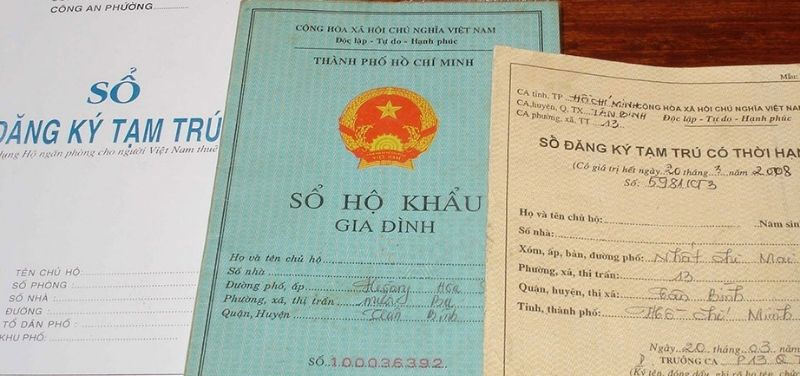 CÔNG AN PHƯỜNG
SỔ
ĐĂNG KÝ TẠM TRÚ
dụng Hộ ngăn phòng cho người Việt Nam thuê
TÊN CHỦ HỘ
SỐ PHÒNG
SỐ NHÀ
ĐƯỜNG :
TỔ DÂN PHỐ :
KHU PHỐ:
CỘNG HÒA XÃ HỘI CHỦ NGHĨA VIỆT NAM
Độc lập - Tự do - Hạnh phúc
THÀNH PHỐ HỒ CHÍ MINH
VIỆT NAM
SỔ HỘ KHẨU
GIA ĐÌNH
Họ và tên chủ hộ
Số nhà
Đường phố, ấp
Phường, xã, thị trấn
Quận, Huyện Tân Bình
SỐ 100036392
Mẫu:
CA tỉnh, TP Hồ Chí Minh CỘNG HÒA XÃ HỘI CHỦ NGHĨA VIỆT NAM
CA huyện, Q. TX TÂN BÌNH Độc lập - Tự do - Hạnh phúc
CA phường, xã, TT 13
SỔ ĐĂNG KÝ TẠM TRÚ CÓ THỜI HẠN
(Có giá trị hết ngày 20 tháng 3 năm 2008
Số: 5981/CT3
Họ và tên chủ hộ: Năm sin
Số nhà:
Xóm, ấp, bản, đường phố: Nhất Chi Mai
Phường, xã, thị trấn: 13
Quận, huyện, thị xã: Tân Bình
Tỉnh, thành phố: Hồ Chí Minh
Ngày 20 tháng 03 năm
TRƯỞNG CA P13 Q T
(Ký tên, đóng dấu, ghi rõ họ tên, chức